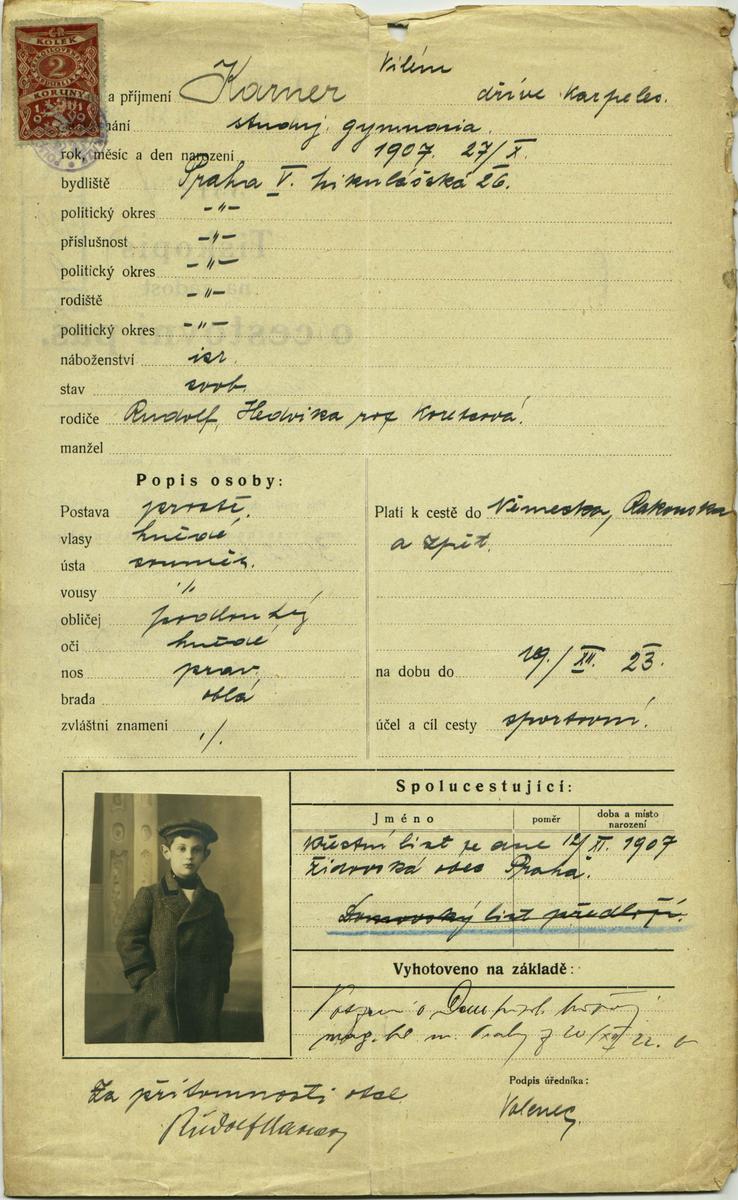 KOLEK
2
KORUNY
a příjmení Karner Vilém dříve Karpeles.
studuj. gymnasia.
rok, měsíc a den narození 1907. 27/X.
bydliště Praha V. Mikulášská 26.
politický okres -"-
příslušnost -"-
politický okres -"-
rodiště -"-
politický okres -"-
náboženství isr.
stav svob.
rodiče Rudolf, Hedvika roz Koretzová.
manžel
Popis osoby:
Postava prostř.
vlasy hnědé
ústa souměr.
vousy "
obličej podlouhlý
oči hnědé
nos prav.
brada oblá
zvláštní znamení ./.
Platí k cestě do Německa, Rakouska
a zpět.
na dobu do 19./XII. 23.
účel a cíl cesty sportovní.
Spolucestující:
Jméno poměr doba a místo narození
Křestní list ze dne 12/XI. 1907
Židovská obec Praha.
Domovský list předloží.
Vyhotoveno na základě:
mag. hl. m. Prahy z 20/XII 22.
Podpis úředníka:
Za přítomnosti otce
Rudolf Karner